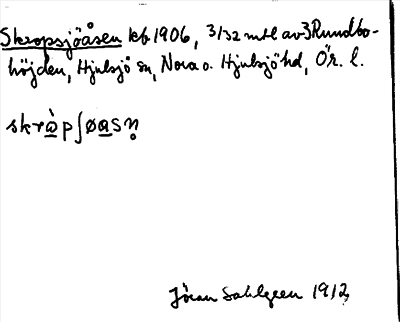 Skropsjöåsen kb 1906, 3/32 mtl av 3 Rundbo-
höjden, Hjulsjö sn, Nora o. Hjulsjö hd, Ör. l.
skrὼpʃøasn̥
Jöran Sahlgren 1912